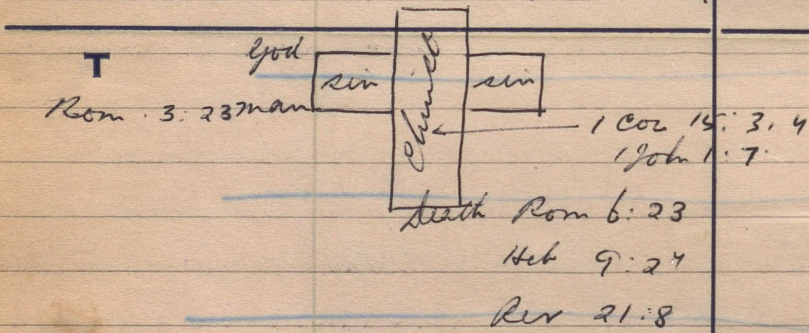 T
God
sin Christ sin
Rom. 3:23 man
1 Cor 15:3,4
1 John 1:7
Death Rom 6:23
Heb 9:27
Rev 21:8